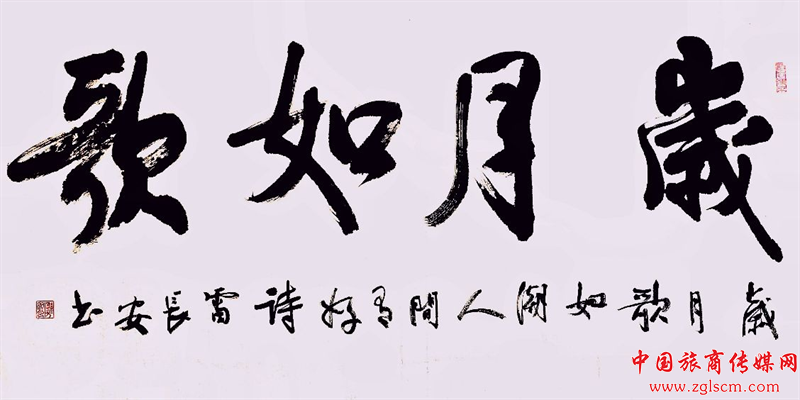 歲月如歌
歲月歌如潮人間有好詩雷長安书
中国旅商传媒网
www.zglscm.com